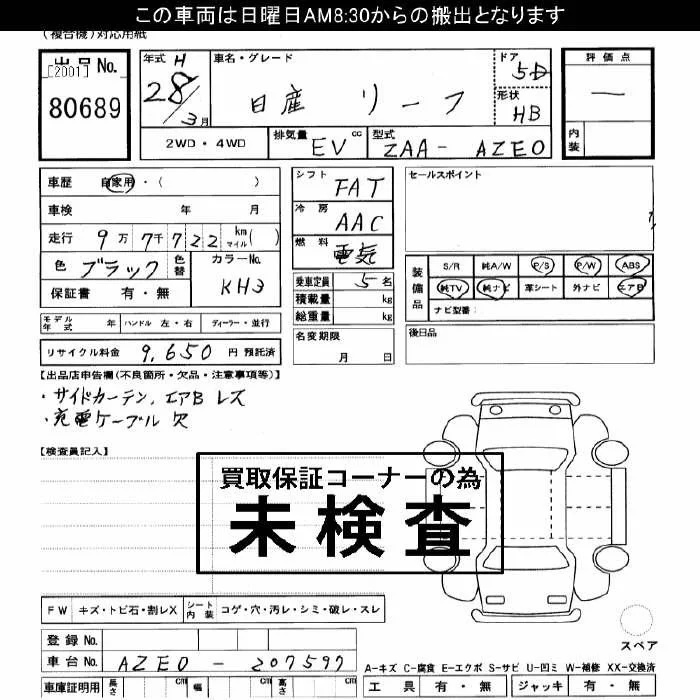 この車両は日曜日AM8:30からの搬出となります
(複合機)対応用紙
出品No.
[2001]
80689
年式 H 28/3月
車名・グレード
日産 リーフ
ドア 5D
形状 HB
評価点
ー
内装
2WD・4WD
排気量 EV cc
型式 ZAA- AZE0
車歴 自家用・( )
車検 年 月
走行 9万7千722 km マイル( )
色 ブラック 色替
カラーNo. KH3
保証書 有・無
シフト FAT
冷房 AAC
燃料 電気
乗車定員 5名
積載量 kg
総重量 kg
名変期限
月 日
セールスポイント
装備品
S/R 純A/W P/S P/W ABS
純TV 純ナビ 革シート 外ナビ エアB
ナビ型番:
後日品
モデル年式 年 ハンドル 左・右 ディーラー・並行
リサイクル料金 9,650 円 預託済
【出品店申告欄(不良箇所・欠品・注意事項等)】
・サイドカーテン,エアB レス
・充電ケーブル 欠
【検査員記入】
買取保証コーナーの為
未検査
FW キズ・トビ石・割レX シート内装 コゲ・穴・汚レ・シミ・破レ・スレ
登録No.
車台No. AZE0 - 207597
スペア
A-キズ C-腐食 E-エクボ S-サビ U-凹ミ W-補修 XX-交換済
車庫証明用 長さ cm 幅 cm 高さ cm
工具 有・無 ジャッキ 有・無